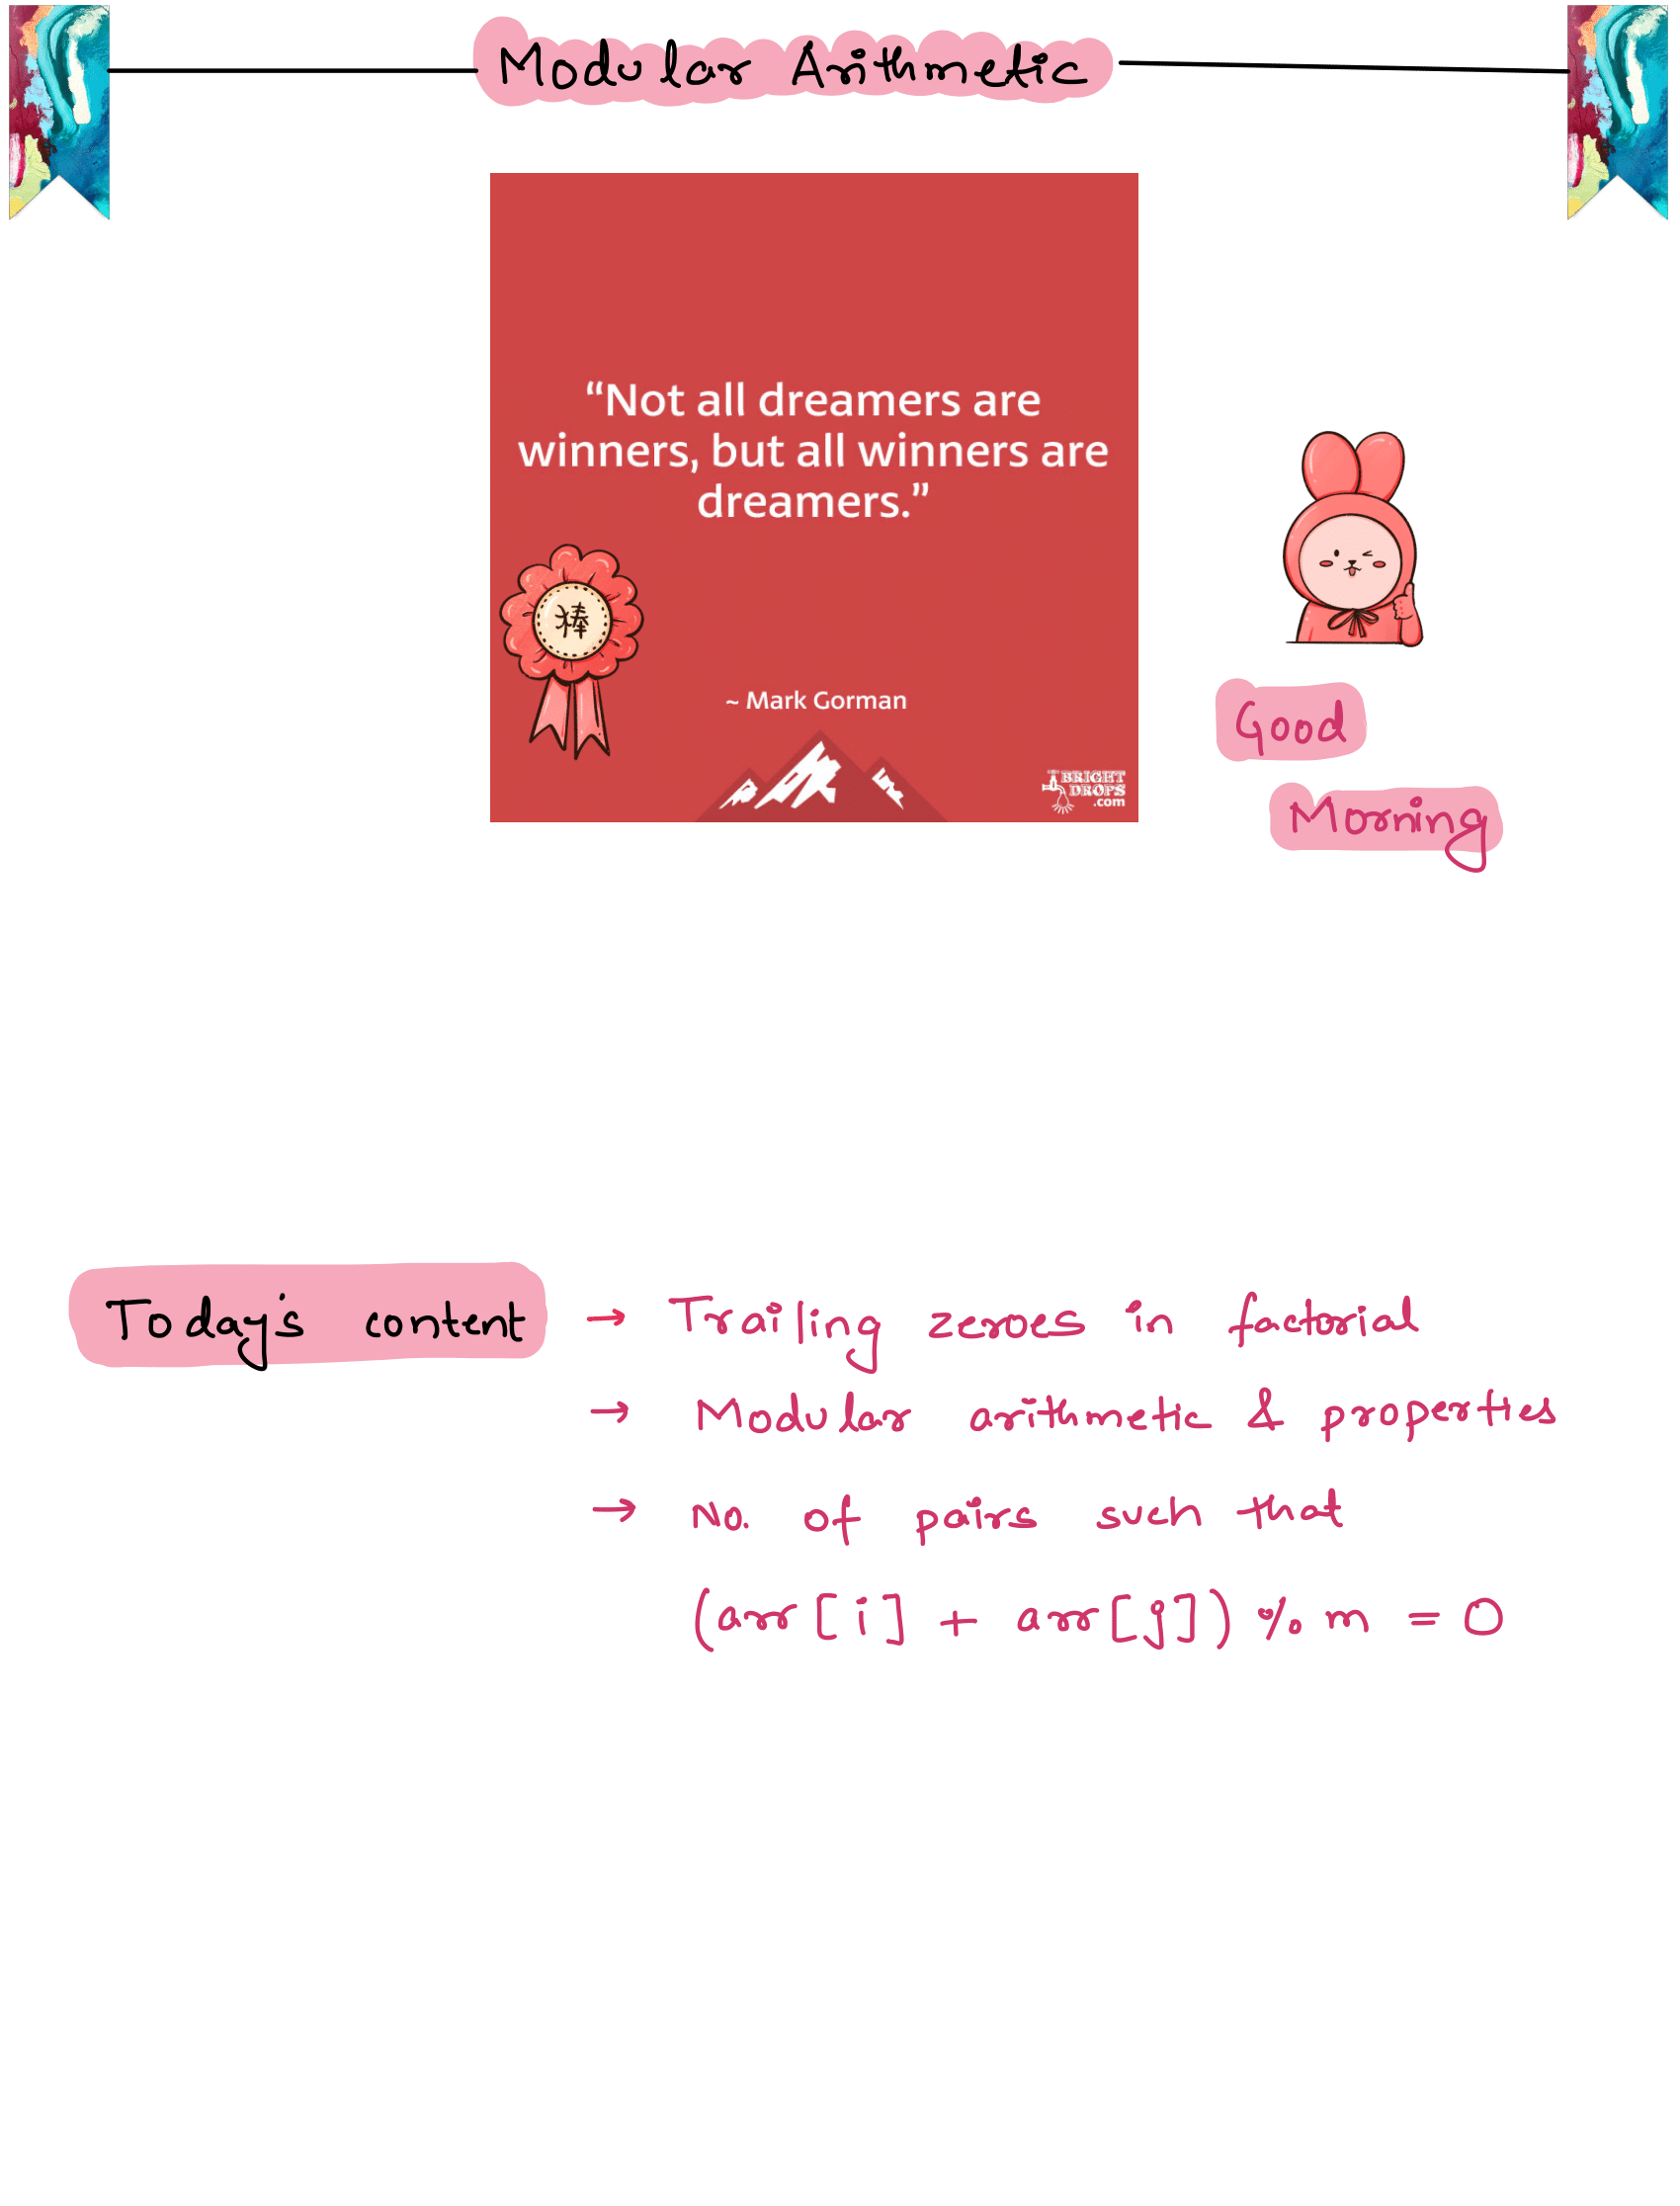 Modular Arithmetic
“Not all dreamers are
winners, but all winners are
dreamers.”
棒
~ Mark Gorman
BRIGHT
DROPS
.com
Good
Morning
Today's content → Trailing zeroes in factorial
→ Modular arithmetic & properties
→ No. of pairs such that
(arr[i] + arr[j]) % m = 0